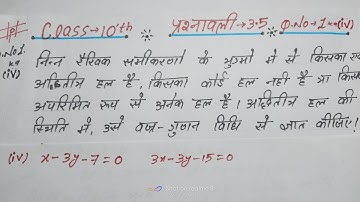 Class→10th →प्रश्नावली→3.5 Q.No→1 का (iv)
Q.No.1 का (iv) निम्न रैखिक समीकरणों के युग्मों में से किसका एक
अद्वितीय हल है, किसका कोई हल नहीं है या किसके
अपरिमित रूप से अनेक हल हैं। अद्वितीय हल की
स्थिति में, उसे वज्र-गुणन विधि से ज्ञात कीजिए।
(iv) x-3y-7=0 3x-3y-15=0